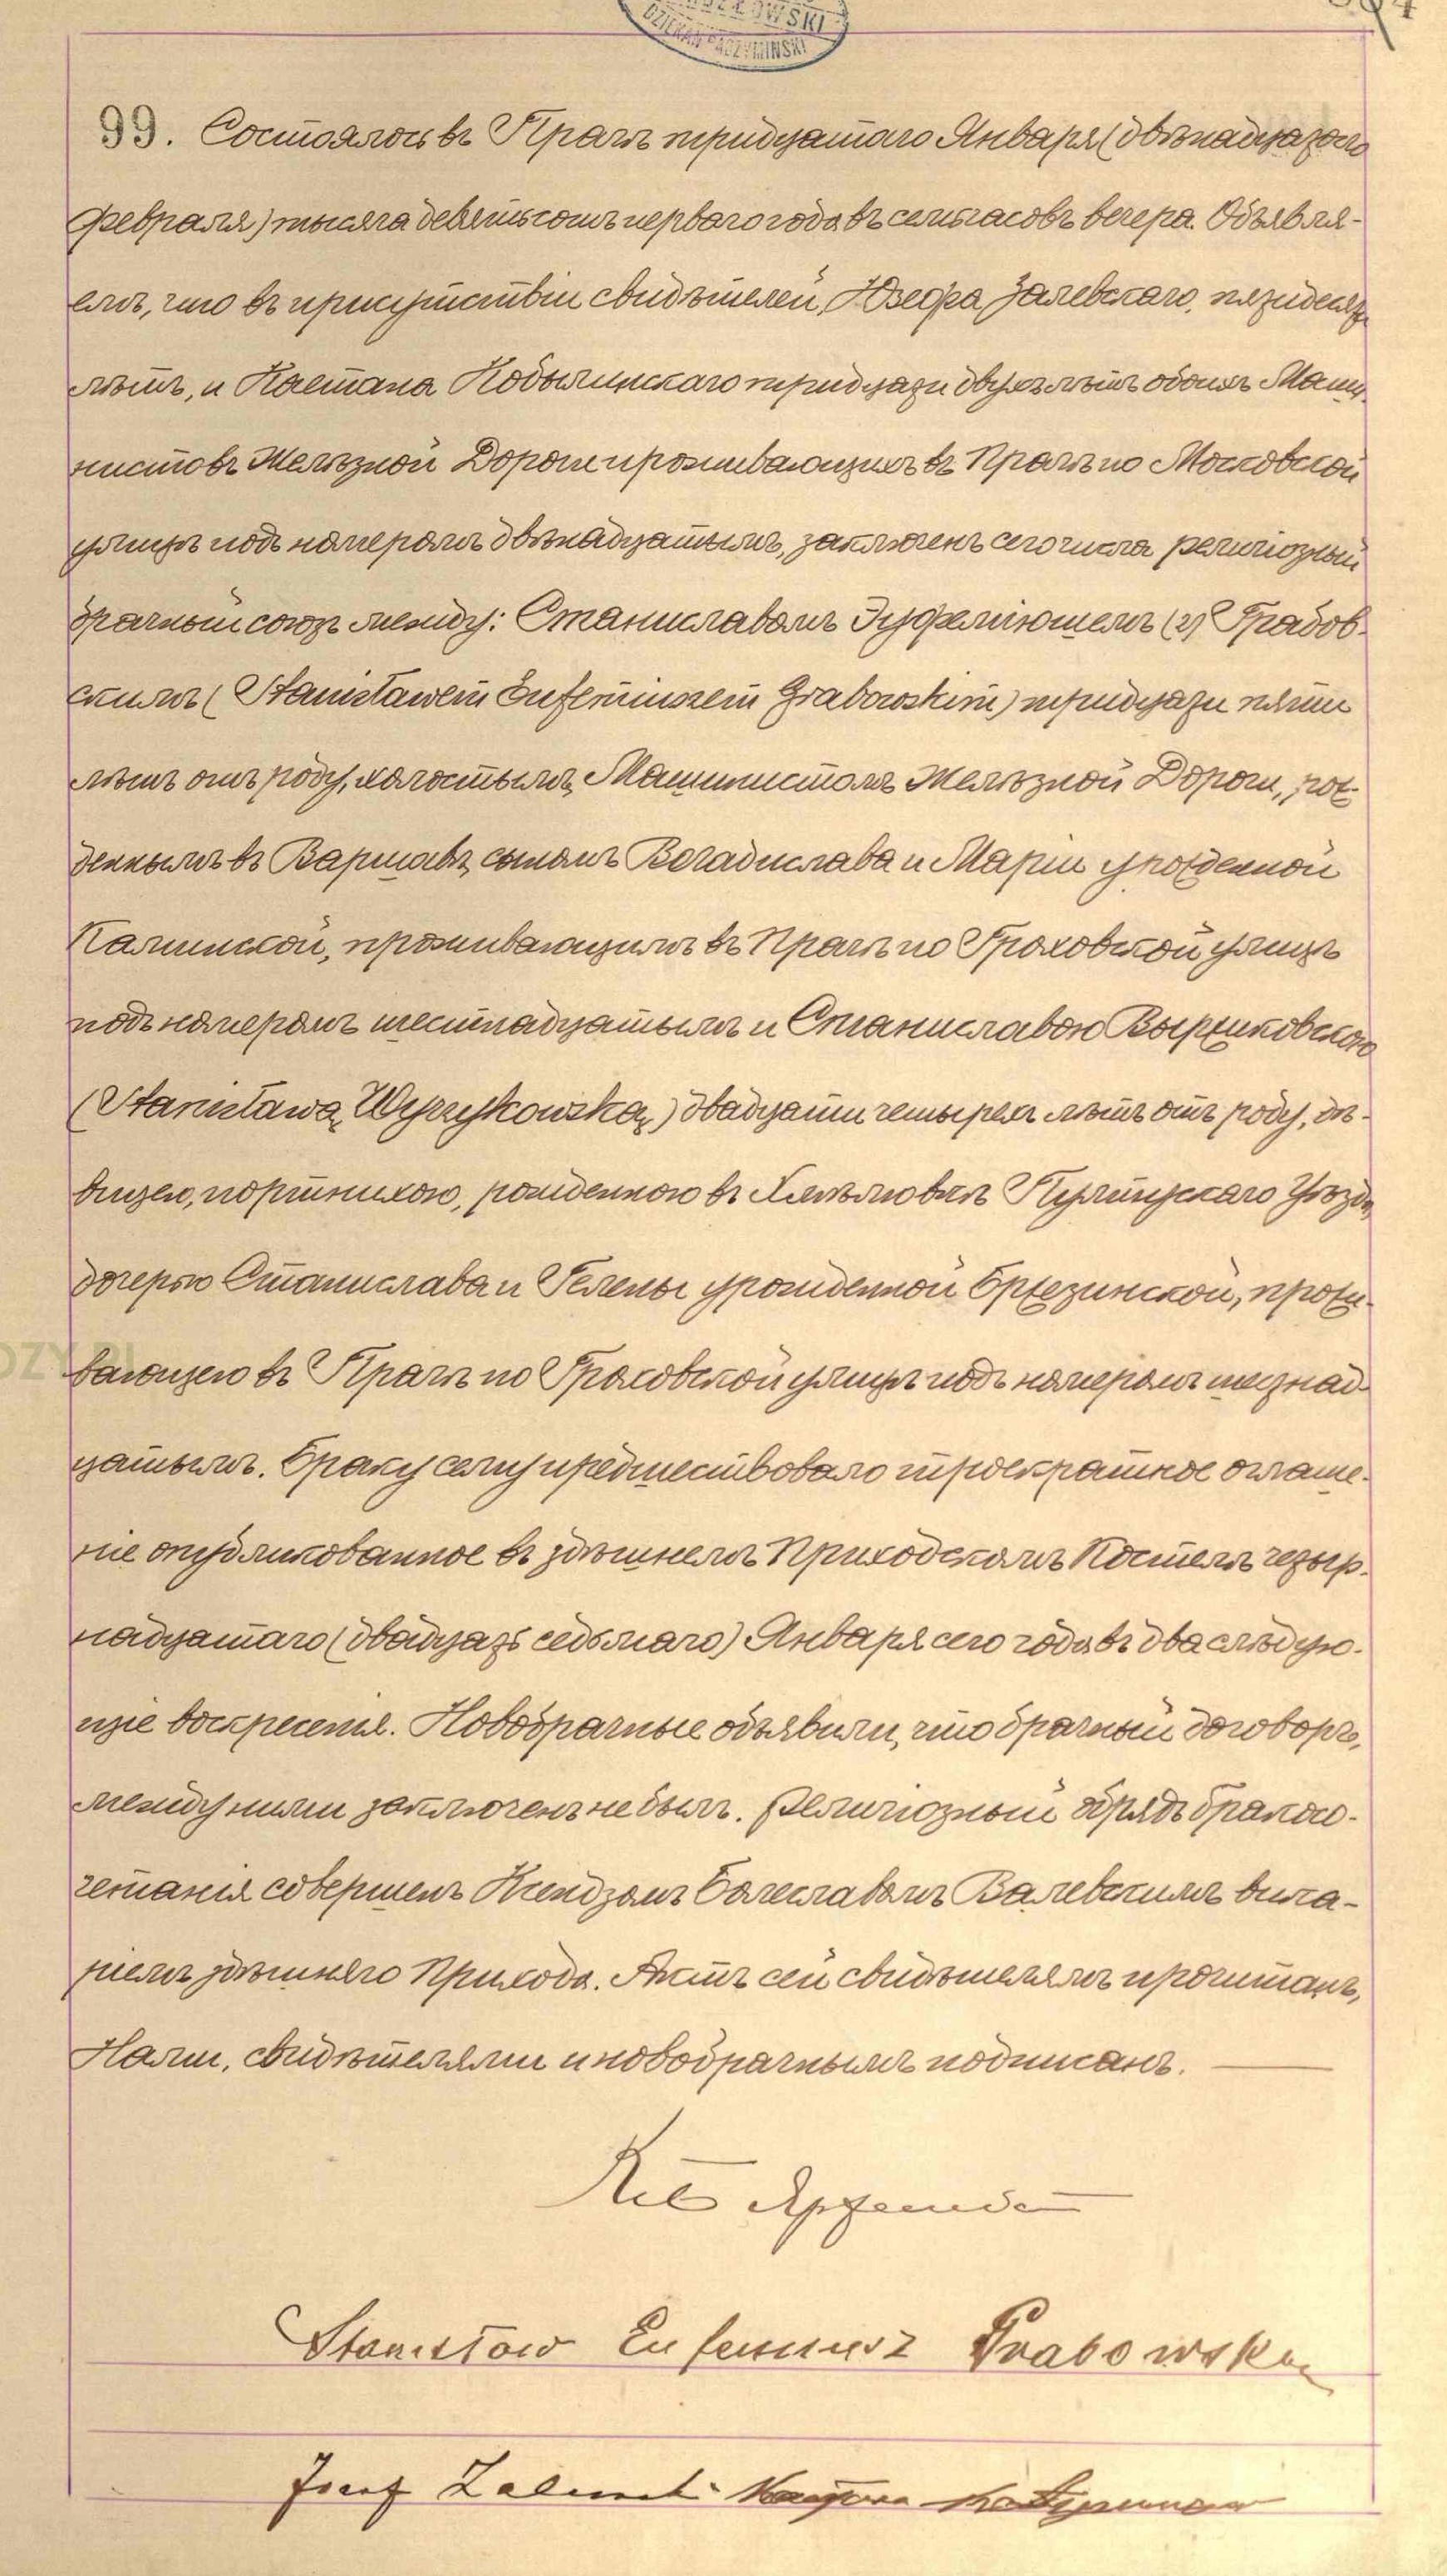 ZŁOWSKI
DZIEKAN RADZYMIŃSKI
99. Состоялось въ Прагѣ тридцатаго Января (двѣнадцатого
Февраля) тысяча девятьсотъ перваго года въ семь часовъ вечера. Объявля-
емъ, что въ присутствіи свидѣтелей, Юзефа Залевскаго, пятидесяти
лѣтъ, и Каетана Кобылинскаго тридцати двухъ лѣтъ обоихъ Маши-
нистовъ Желѣзной Дороги проживающихъ въ Прагѣ по Московской
улицѣ подъ номеромъ двѣнадцатымъ, заключенъ сего числа религіозный
брачный союзъ между: Станиславомъ Эуфеміюшемъ (2) Грабов-
скимъ (Stanisławem Eufemiuszem Grabowskim) тридцати пяти
лѣтъ отъ роду, холостымъ, Машинистомъ Желѣзной Дороги, рож-
деннымъ въ Варшавѣ, сыномъ Владислава и Маріи урожденной
Калинской, проживающимъ въ Прагѣ по Гроховской улицѣ
подъ номеромъ шестнадцатымъ и Станиславою Выржиковскою
(Stanisławą Wyrzykowską) двадцати четырехъ лѣтъ отъ роду, дѣ-
вицею, портнихою, рожденною въ Пултускаго Уѣзда,
дочерью Станислава и Гелены урожденной Бржезинской, прожи-
вающею въ Прагѣ по Гроховской улицѣ подъ номеромъ шезнад-
цатымъ. Браку сему предшествовало троекратное оглаше-
ніе опубликованное въ здѣшнемъ Приходскомъ Костелѣ четыр-
надцатаго (двадцать седьмаго) Января сего года въ два слѣдую-
щіе воскресенія. Новобрачные объявили, что брачный договоръ,
между ними заключенъ не былъ. Религіозный обрядъ бракосо-
четанія совершенъ Ксендзомъ Болеславомъ Валевскимъ вика-
ріемъ здѣшняго Прихода. Актъ сей свидѣтелямъ прочитанъ,
Нами, свидѣтелями и новобрачнымъ подписанъ.
Stanisław Eufemiusz Grabowski
Józef Zalewski